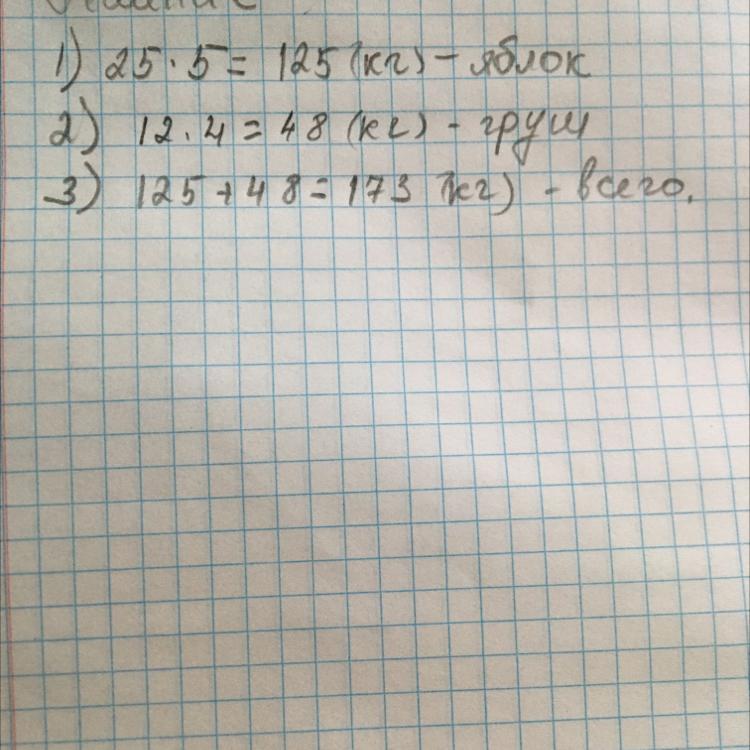 1) 25·5= 125 (кг) – яблок
2) 12.4 = 48 (кг) - груш
3) 125+48=173 (кг) - всего.